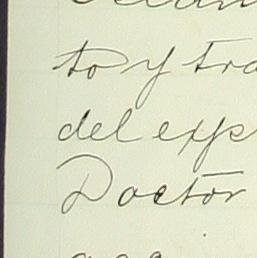 to y tra
del exp
Doctor